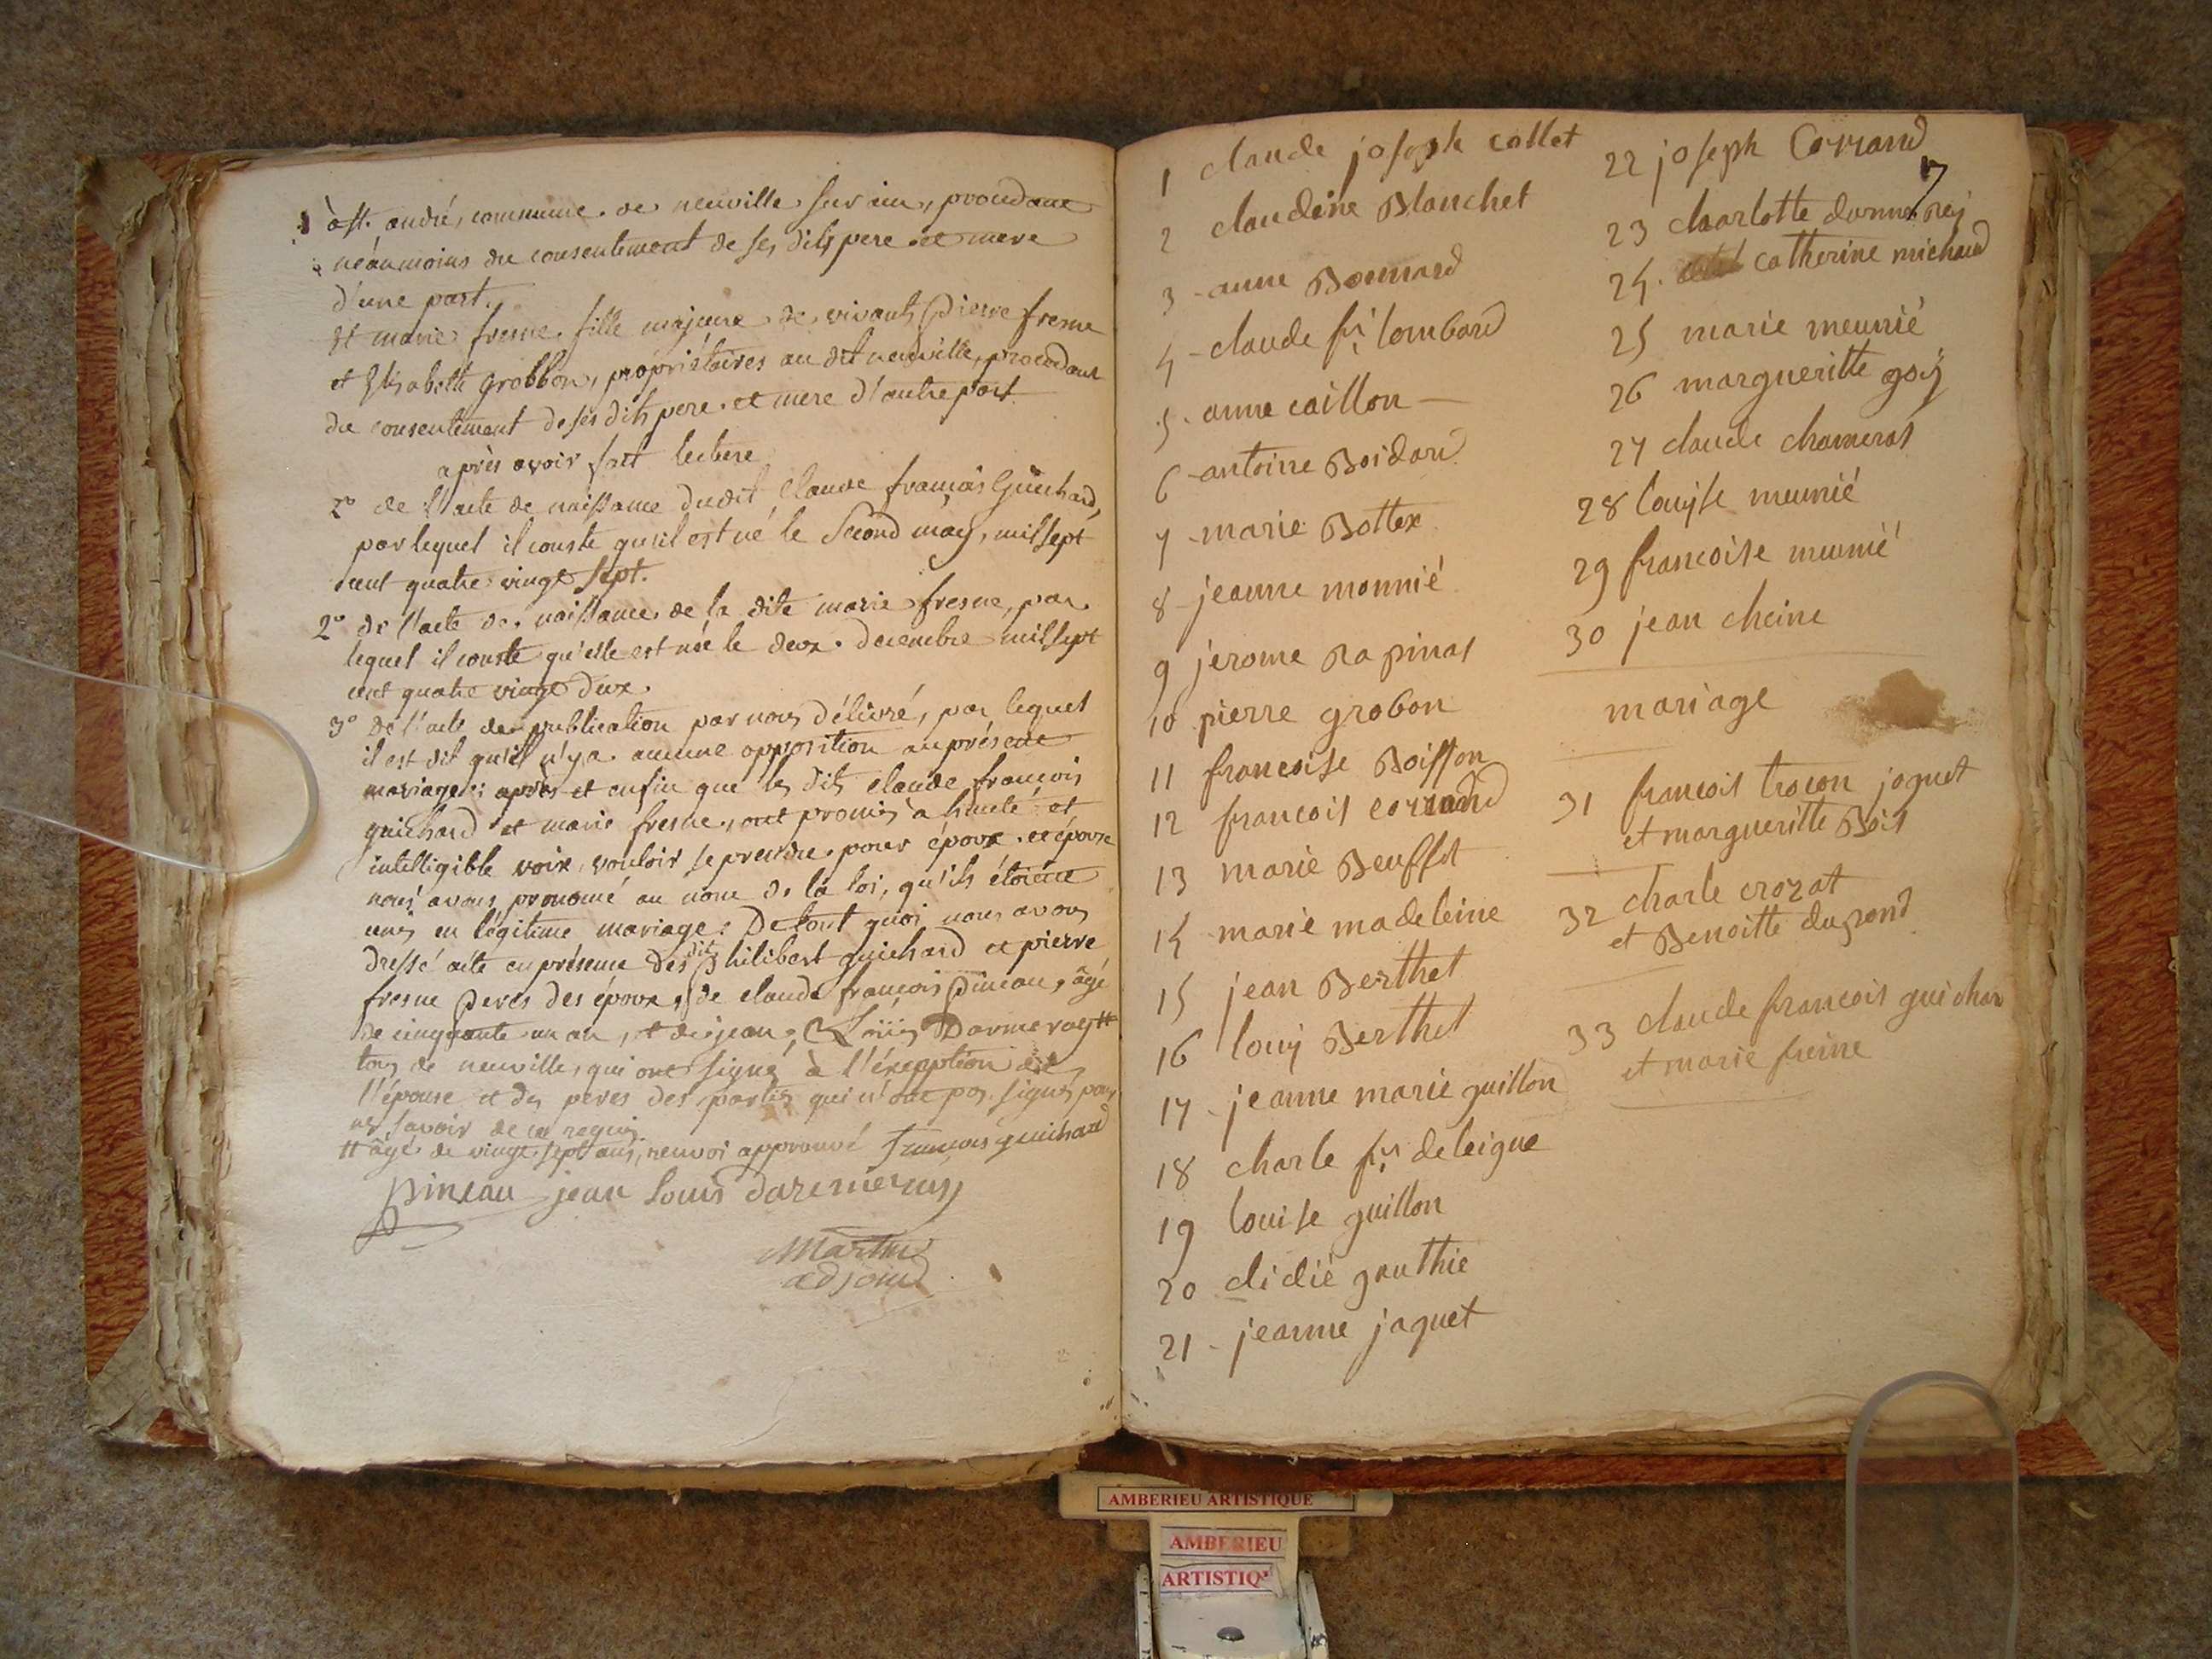 à st. andré, commune de neuville sur ain, procédant
néanmoins du consentement de ses dits pere et mere
d'une part.
Et marie fresne fille majeure de vivants Pierre fresne
et Elisabeth grobbon, propriétaires au dit neuville, procedant
du consentement de ses dits pere et mere d'autre part
après avoir fait lecture
de l'acte de naissance dudit Claude françois Guichard,
par lequel il conste qu'il est né le second may, mil sept
cent quatre vingt sept.
2° de l'acte de naissance de la dite marie fresne, par
lequel il conste qu'elle est née le deux decembre mil sept
cent quatre vingt deux.
3° De l'acte de publication par nous délivré, par lequel
il est dit qu'il n'y a aucune opposition au présent
mariage: après et enfin que les dits claude françois
guichard et marie fresne, ont promis à haute et
intelligible voix, vouloir se prendre pour époux et épouse
nous avons prononcé au nom de la loi, qu'ils étoient
unis en légitime mariage: De tout quoi nous avons
dressé acte en présence des dits Philibert guichard et pierre
fresne peres des époux, de claude françois Pineau, âgé
de cinquante un an, et de jean Louis Darmeray #
tous de neuville, qui ont signé à l'exception de
l'épouse et des peres des parties qui n'ont pas signés pour
ne savoir de ce requis
# âgé de vingt sept ans, renvoi approuvé françois guichard
pineau jean Louis daremeray
Martin
adjoint
1 claude joseph collet
2 claudine Blanchet
3 - anne Bonnard
4 - claude f.s lombard
5 - anne caillon
6 - antoine Boidard
7 - marie Bottex
8 - jeanne monnié
9 jerome Rapinas
10 pierre grobon
11 francoise Boisson
12 francois corrand
13 marie Beuffet
14 - marie madeleine
15 jean Berthet
16 louy Berthet
17 - jeanne marie guillon
18 charle f.s deleigue
19 louise guillon
20 didié gauthie
21 - jeanne jaquet
22 joseph Corrand
7
23 charlotte darmerey
24 - catherine michaud
25 marie meunié
26 margueritte goy
27 claude chameras
28 louyse meunié
29 francoise meunié
30 jean cheine
mariage
31 francois trocon jaquet
et margueritte Bois
32 charle crozat
et Benoitte dugrond
33 claude francois guichar
et marie freine
AMBERIEU ARTISTIQUE
AMBERIEU
ARTISTIQ